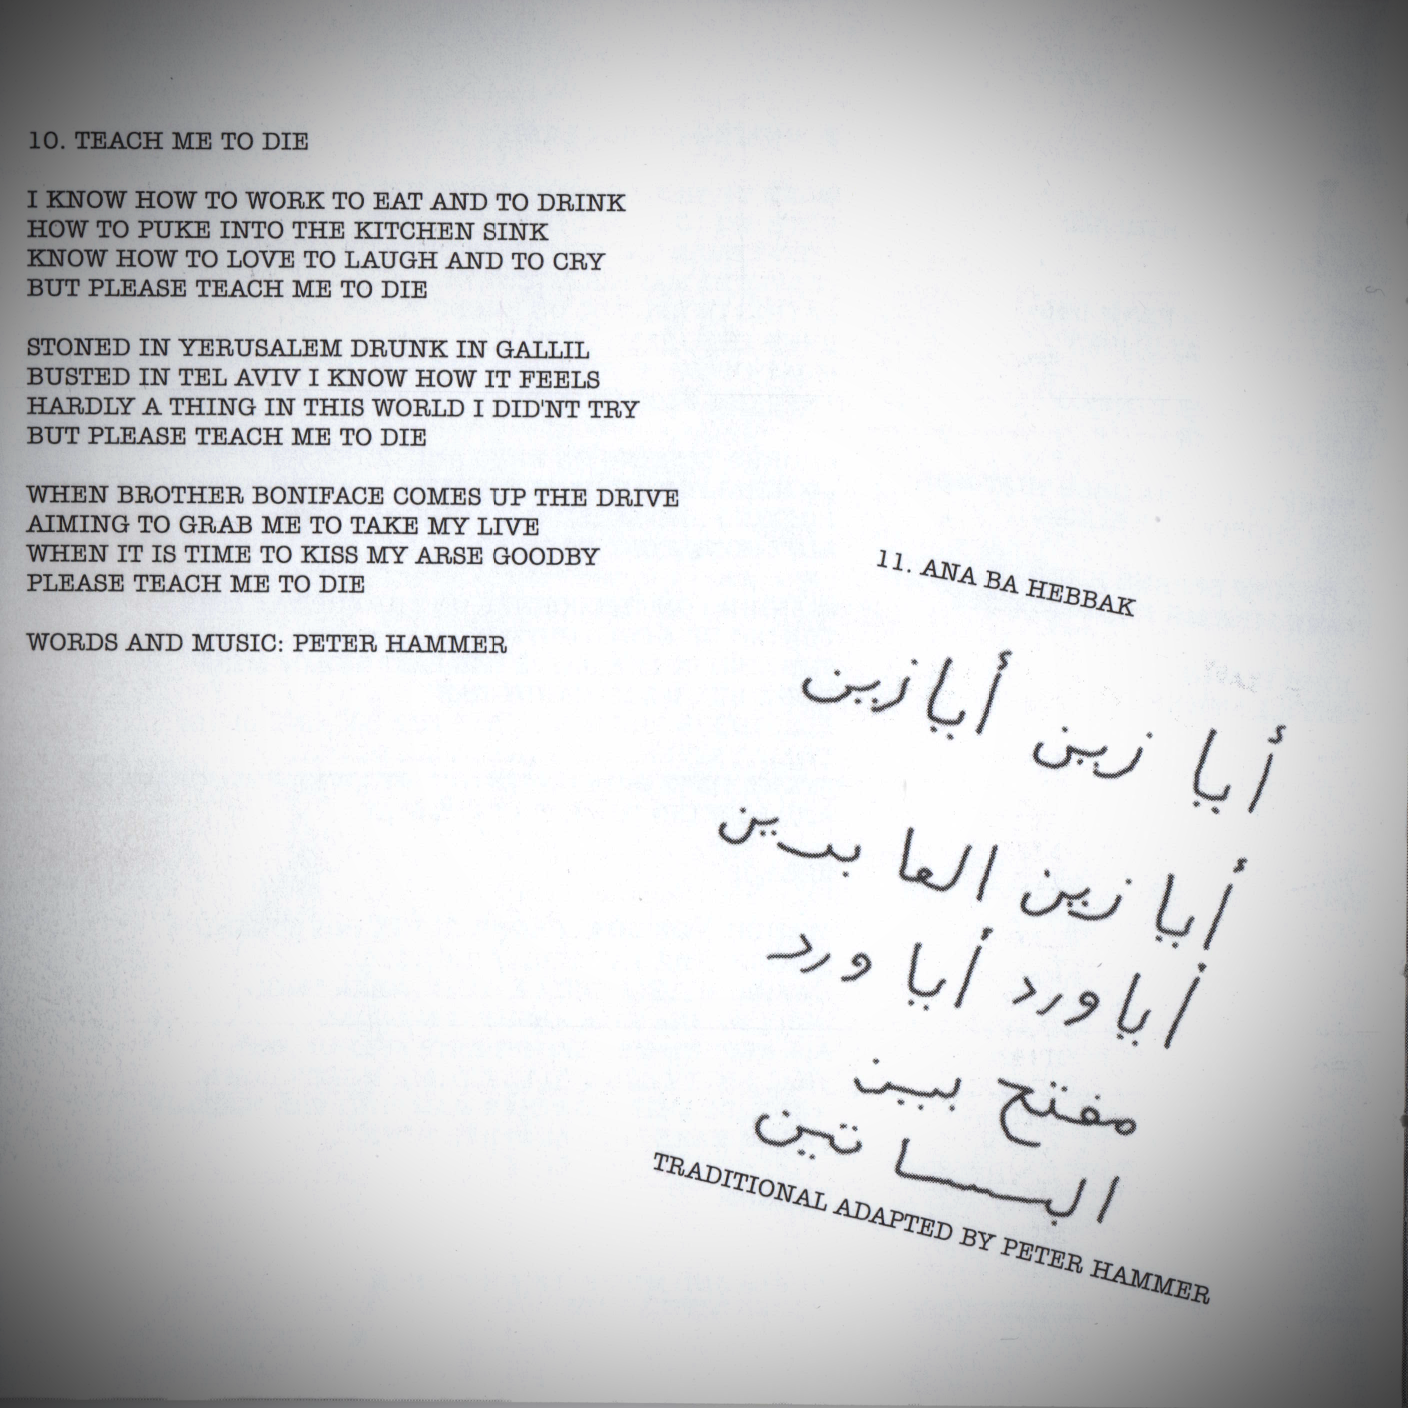 10. TEACH ME TO DIE
I KNOW HOW TO WORK TO EAT AND TO DRINK
HOW TO PUKE INTO THE KITCHEN SINK
KNOW HOW TO LOVE TO LAUGH AND TO CRY
BUT PLEASE TEACH ME TO DIE
STONED IN YERUSALEM DRUNK IN GALLIL
BUSTED IN TEL AVIV I KNOW HOW IT FEELS
HARDLY A THING IN THIS WORLD I DID'NT TRY
BUT PLEASE TEACH ME TO DIE
WHEN BROTHER BONIFACE COMES UP THE DRIVE
AIMING TO GRAB ME TO TAKE MY LIVE
WHEN IT IS TIME TO KISS MY ARSE GOODBY
PLEASE TEACH ME TO DIE
WORDS AND MUSIC: PETER HAMMER
11. ANA BA HEBBAK
أيا زين أيا زين
أيا زين العابدين
أيا ورد أيا ورد
مفتح بين
البساتين
TRADITIONAL ADAPTED BY PETER HAMMER